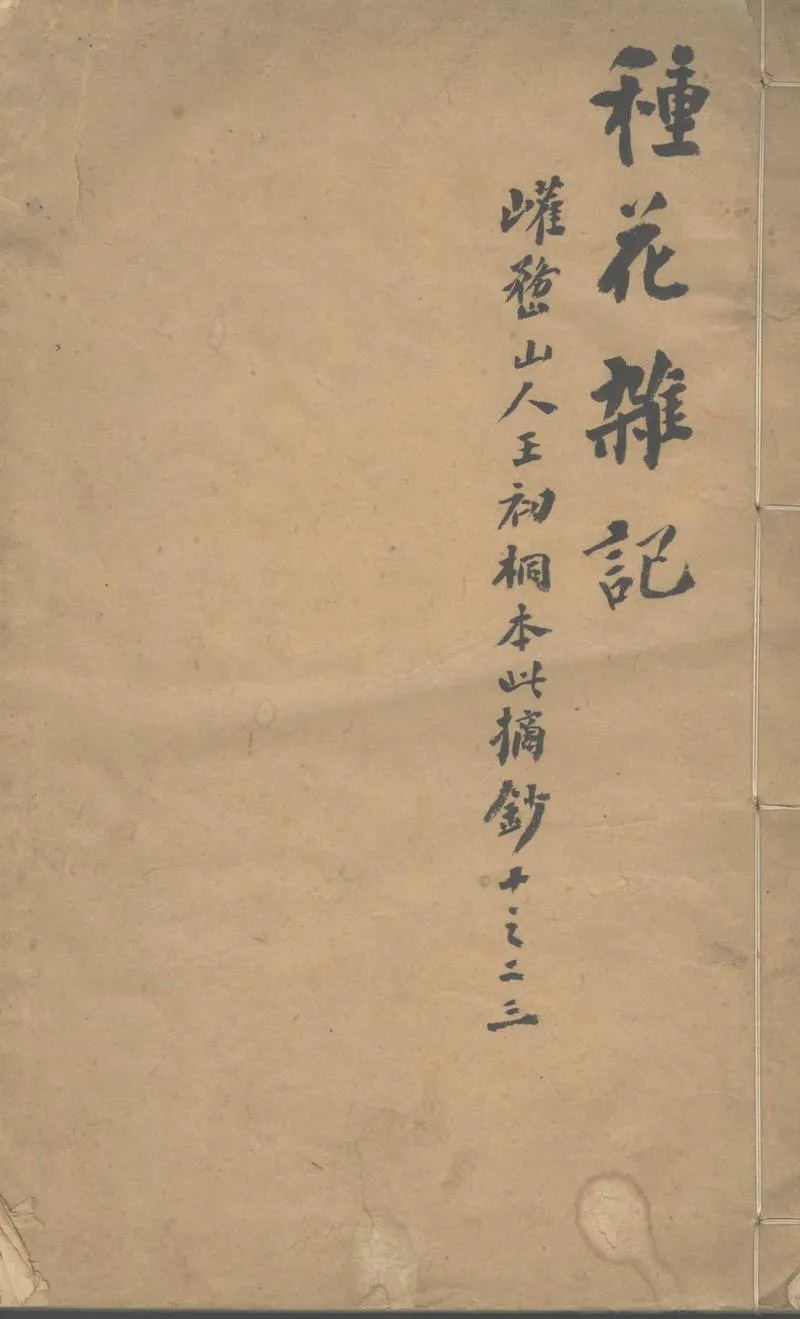 種花雜記
巏堥山人王初桐本此摘鈔十之二三